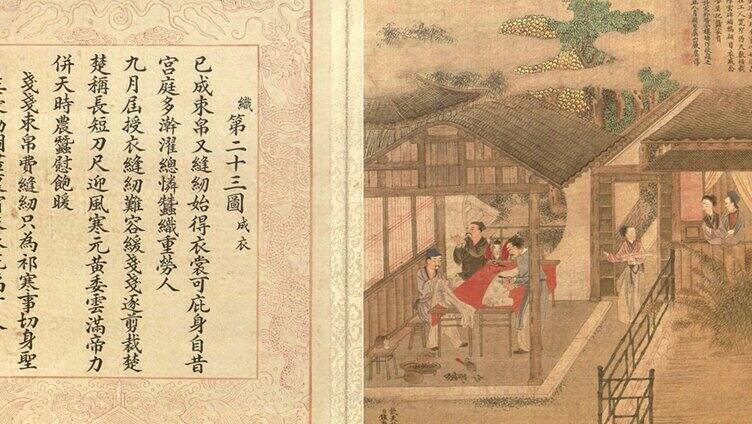 織第二十三圖 成衣
已成束帛又縫紉始得衣裳可庇身自昔
宮庭多澣濯總憐蠶織重勞人
九月屆授衣縫紉難容緩戔戔逐剪裁楚
楚稱長短刀尺迎風寒元黃委雲滿帝力
併天時農蠶慰飽暖
戔戔束帛費縫紉只為祁寒事切身聖